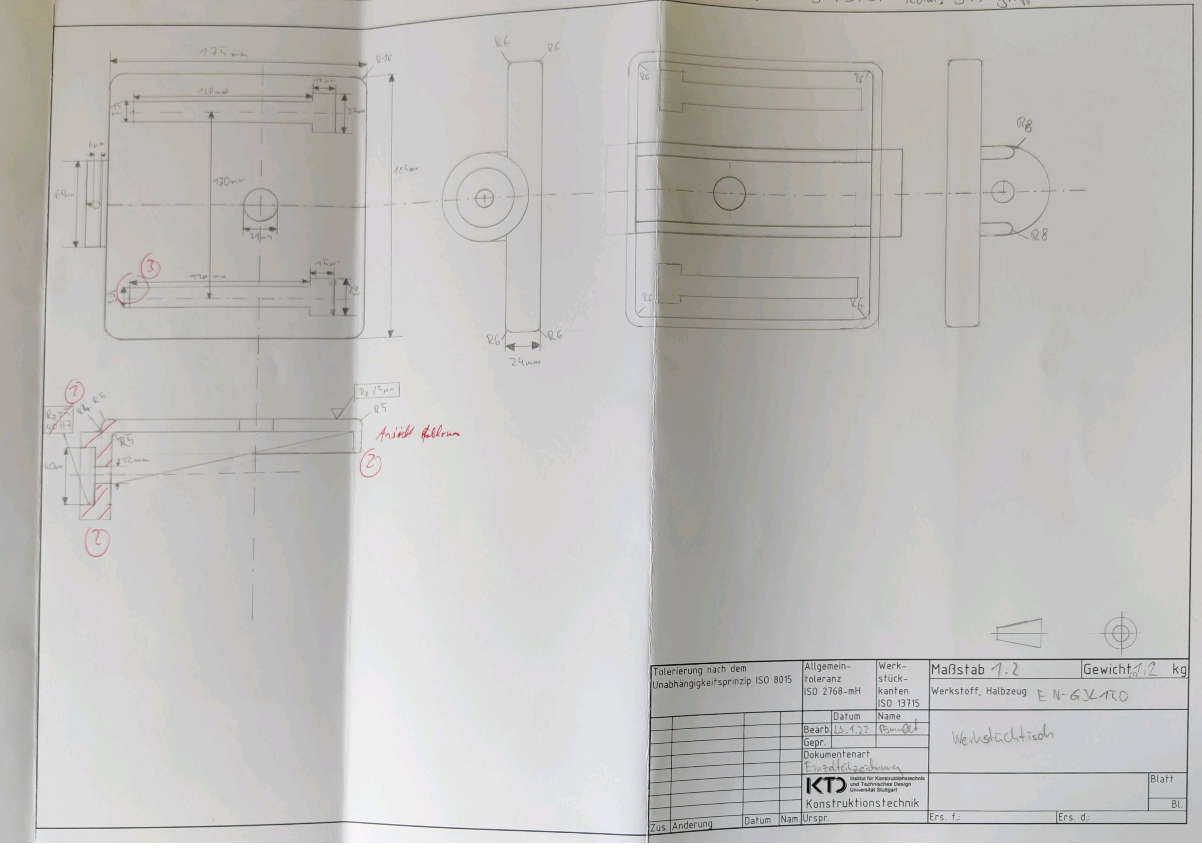 175mm
R16
120mm
15
130mm
6mm
21mm
185mm
3
120 mm
15
R6
R6
R6
R6
24mm
R6
R6
R6
R6
R8
R8
1
R5
R5
R5
12mm
40
2
Rz 25µm
R5
Ansicht
2
Tolerierung nach dem
Unabhängigkeitsprinzip ISO 8015
Allgemein-
toleranz
ISO 2768-mH
Werk-
stück-
kanten
ISO 13715
Maßstab 1:2
Gewicht 1,2 kg
Werkstoff, Halbzeug EN-GJL150
Datum Name
Bearb. 23.1.22
Gepr.
Werkstücktisch
Dokumentenart
Einzelteilzeichnung
KTD Institut für Konstruktionstechnik
und Technisches Design
Universität Stuttgart
Konstruktionstechnik
Blatt
Bl.
Zus. Änderung Datum Nam. Urspr. Ers. f.: Ers. d.: